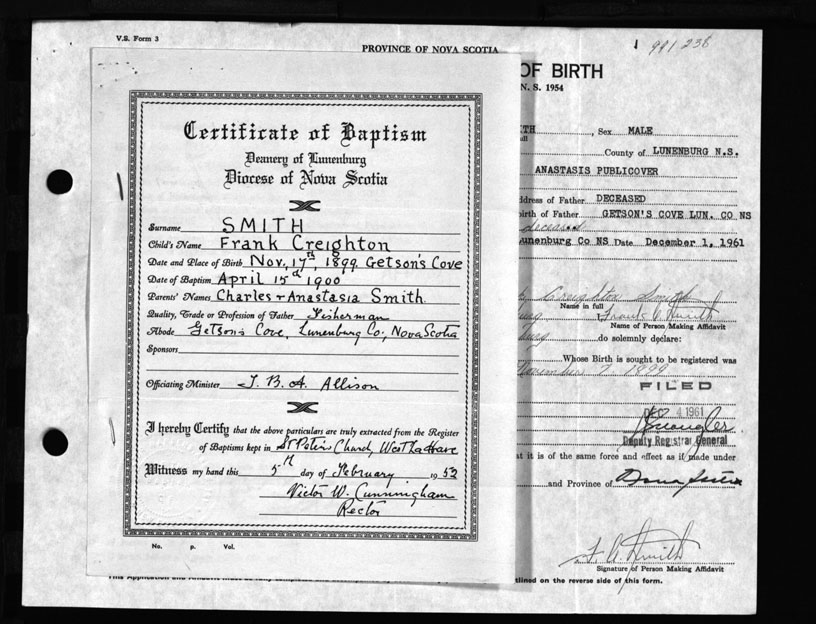 V.S. Form 3
PROVINCE OF NOVA SCOTIA
991 238
OF BIRTH
N. S. 1954
Certificate of Baptism
Deanery of Lunenburg
Diocese of Nova Scotia
Surname SMITH
Child's Name Frank Creighton
Date and Place of Birth Nov, 17th, 1899 Getson's Cove
Date of Baptism April 15d 1900
Parents' Names Charles + Anastasia Smith
Quality, Trade or Profession of Father Fisherman
Abode Getson's Cove, Lunenburg Co., Nova Scotia
Sponsors
Officiating Minister J. B. A. Allison
I hereby Certify that the above particulars are truly extracted from the Register
of Baptisms kept in St Peter's Church, West LaHave
Witness my hand this 5th day of February 1952
Victor W. Cunningham
Rector
No. p. Vol.
ITH, Sex MALE
County of LUNENBURG N.S.
ANASTASIS PUBLICOVER
ddress of Father DECEASED
irth of Father GETSON'S COVE LUN. CO NS
deceased
Lunenburg Co NS Date December 1, 1961
Creighton Smith
Name in full
I Frank C Smith
Name of Person Making Affidavit
do solemnly declare:
Whose Birth is sought to be registered was
November 7 1899
FILED
DEC 4 1961
Deputy Registrar General
t it is of the same force and effect as if made under
and Province of Nova Scotia
Signature of Person Making Affidavit
This Application and Affidavit must be fully completed
tlined on the reverse side of this form.